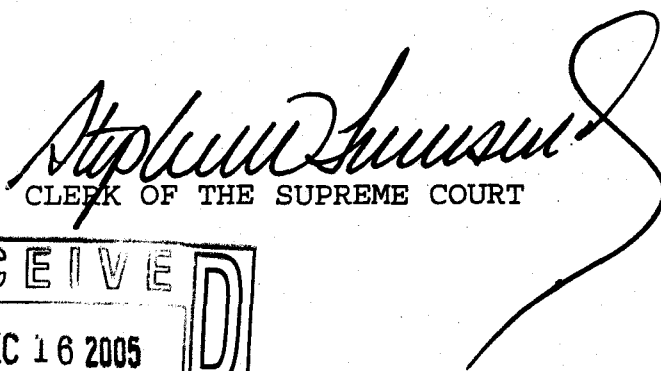 CLERK OF THE SUPREME COURT
CEIVED
C 16 2005